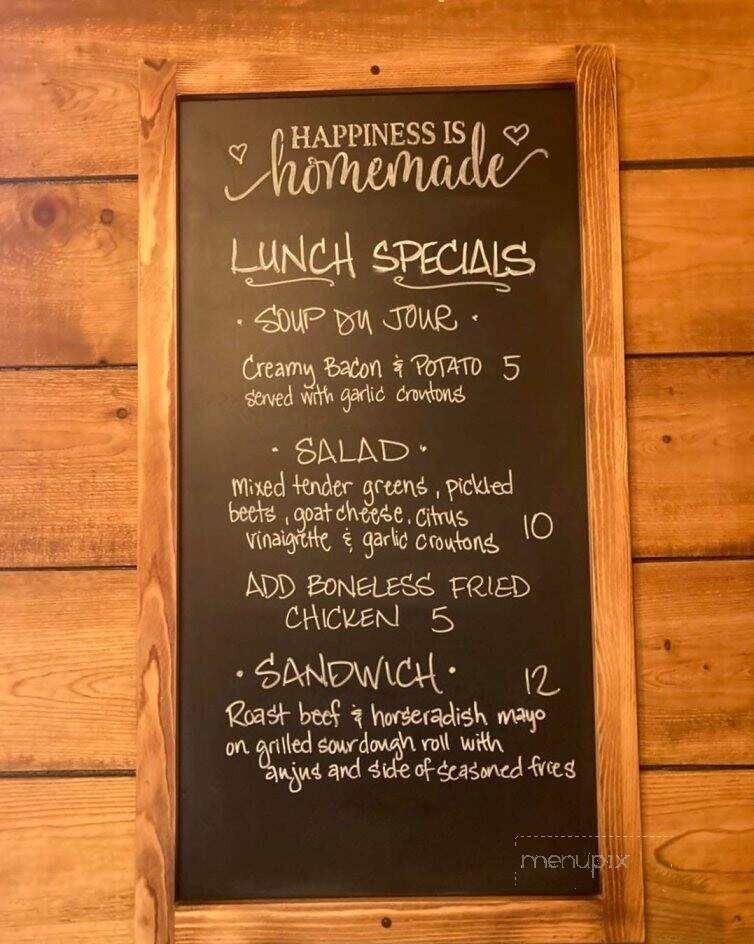 HAPPINESS IS
homemade
LUNCH SPECIALS
· SOUP DU JOUR ·
Creamy Bacon & POTATO 5
served with garlic croutons
· SALAD ·
Mixed tender greens, pickled
beets, goat cheese, citrus
vinaigrette & garlic croutons 10
ADD BONELESS FRIED
CHICKEN 5
· SANDWICH · 12
Roast beef & horseradish mayo
on grilled sourdough roll with
aujus and side of seasoned fries
menupix